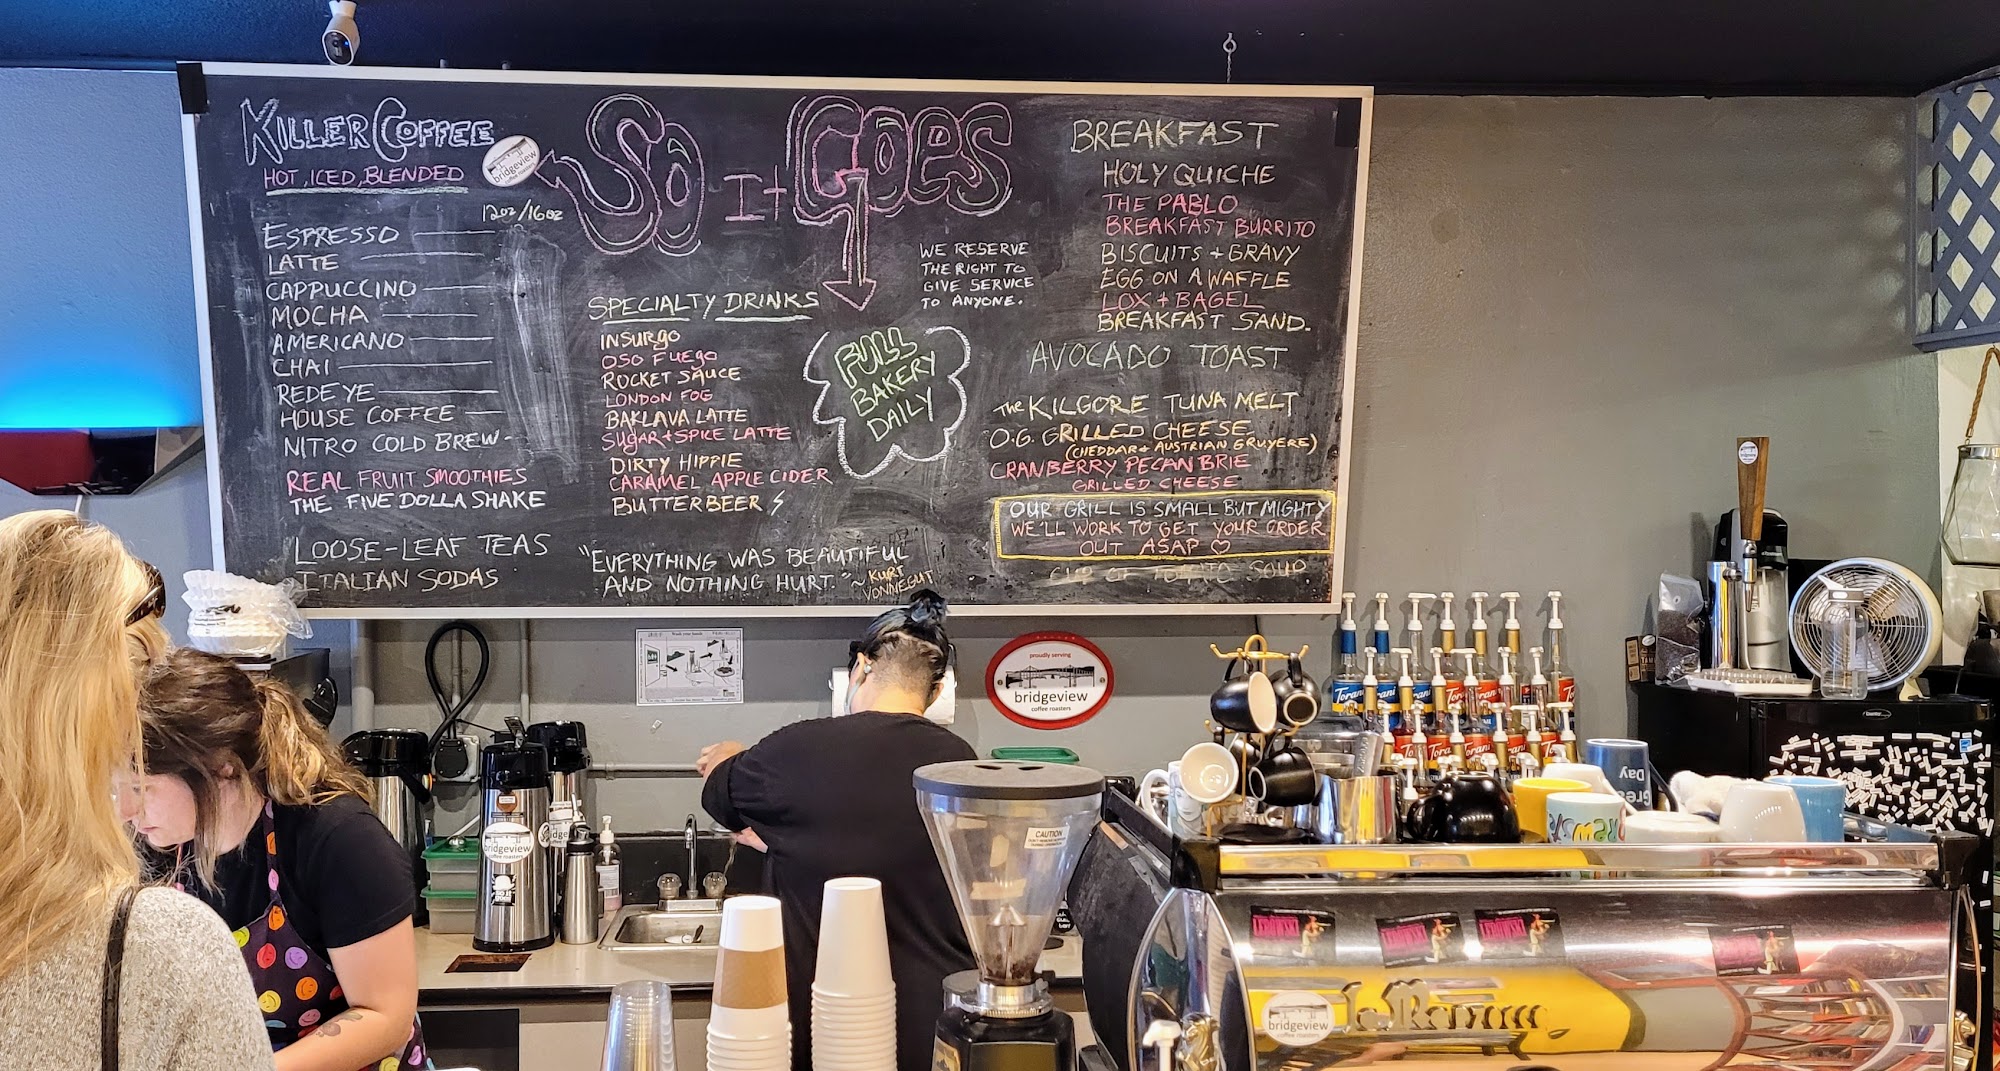 KILLER COFFEE
HOT, ICED, BLENDED
bridgeview
coffee roasters
12oz/16oz
ESPRESSO
LATTE
CAPPUCCINO
MOCHA
AMERICANO
CHAI
REDEYE
HOUSE COFFEE
NITRO COLD BREW
REAL FRUIT SMOOTHIES
THE FIVE DOLLA SHAKE
LOOSE-LEAF TEAS
ITALIAN SODAS
SO It GOES
SPECIALTY DRINKS
INSURGO
OSO FUEGO
ROCKET SAUCE
LONDON FOG
BAKLAVA LATTE
SUGAR + SPICE LATTE
DIRTY HIPPIE
CARAMEL APPLE CIDER
BUTTERBEER
"EVERYTHING WAS BEAUTIFUL
AND NOTHING HURT."
~ KURT
VONNEGUT
WE RESERVE
THE RIGHT TO
GIVE SERVICE
TO ANYONE.
FULL
BAKERY
DAILY
BREAKFAST
HOLY QUICHE
THE PABLO
BREAKFAST BURRITO
BISCUITS + GRAVY
EGG ON A WAFFLE
LOX + BAGEL
BREAKFAST SAND.
AVOCADO TOAST
THE KILGORE TUNA MELT
O.G. GRILLED CHEESE
(CHEDDAR + AUSTRIAN GRUYERE)
CRANBERRY PECAN BRIE
GRILLED CHEESE
OUR GRILL IS SMALL BUT MIGHTY
WE'LL WORK TO GET YOUR ORDER
OUT ASAP ♡
CUP OF TOMATO SOUP
proudly serving
bridgeview
coffee roasters
Torani
Torani
Torani
Torani
bridgeview
coffee roasters
CAUTION
Great
Day
bridgeview
coffee roasters
La Marzocco